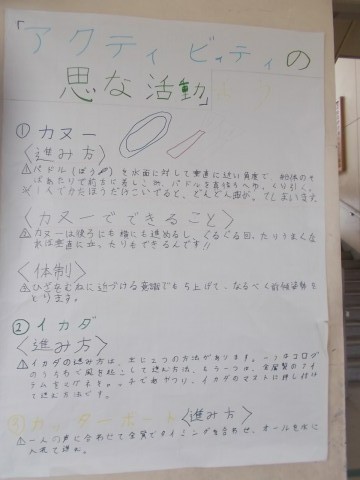 「アクティビティの
思な活動」
①カヌー
〈進み方〉
⚠パドル(ぼう)を水面に対して垂直に近い角度で、
ばあたりで前方に差しこみ、パドルを真後ろへゆっくり引く。
※一人でかたほうだけこいでると、どんどん曲がってしまいます。
〈カヌーでできること〉
⚠カヌーは後ろにも横にも進めるし、ぐるぐる回ったりうまくな
れば垂直に立ったりもできるんです!!
〈体制〉
⚠ひざをむねに近づける意識でもち上げて、なるべく前傾姿勢を
とります。
②イカダ
〈進み方〉
⚠イカダの進み方は、主に2つの方法があります。一つはコログ
のうちわで風を起こして進む方法、もう一つは、金属製のアイ
テムをマグネキャッチで動かし、イカダのマストに押し付け
て進む方法です。
③カッターボート〈進み方〉
⚠一人の声に合わせて全員でタイミングを合わせ、オールを水に
入れて進む。